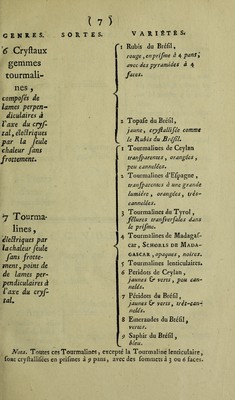 ( 7 )
GENRES. SORTES. VARIÉTÉS.
6 Cryſtaux
gemmes
tourmali-
nes,
compoſés de
lames perpen-
diculaires à
l'axe du cryſ-
tal, électriques
par la ſeule
chaleur ſans
frottement.
1 Rubis du Bréſil,
rouge, en priſme à 4 pans,
avec des pyramides à 4
faces.
2 Topaſe du Bréſil,
jaune, cryſtalliſée comme
le Rubis du Bréſil.
7 Tourma-
lines,
électriques par
la chaleur ſeule
ſans frotte-
ment, point de
de lames per-
pendiculaires à
l'axe du cryſ-
tal.
1 Tourmalines de Ceylan
tranſparentes, orangées,
peu cannelées.
2 Tourmalines d'Eſpagne,
tranſparentes à une grande
lumière, orangées, très-
cannelées.
3 Tourmalines du Tyrol,
félures tranſverſales dans
le priſme.
4 Tourmalines de Madagaſ-
car, SCHORLS DE MADA-
GASCAR, opaques, noires.
5 Tourmalines lenticulaires.
6 Peridots de Ceylan,
jaunes & verts, peu can-
nelés.
7 Péridots du Bréſil,
jaunes & verts, très-can-
nelés.
8 Emeraudes du Bréſil,
vertes.
9 Saphir du Bréſil,
bleu.
Nota. Toutes ces Tourmalines, excepté la Tourmaline lenticulaire,
ſont cryſtalliſées en priſmes à 9 pans, avec des ſommets à 3 ou 6 faces.